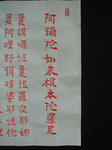 阿彌陀如來根本陀羅尼
曩謨曩怛羅夜耶
莫阿哩野弭婆耶怛